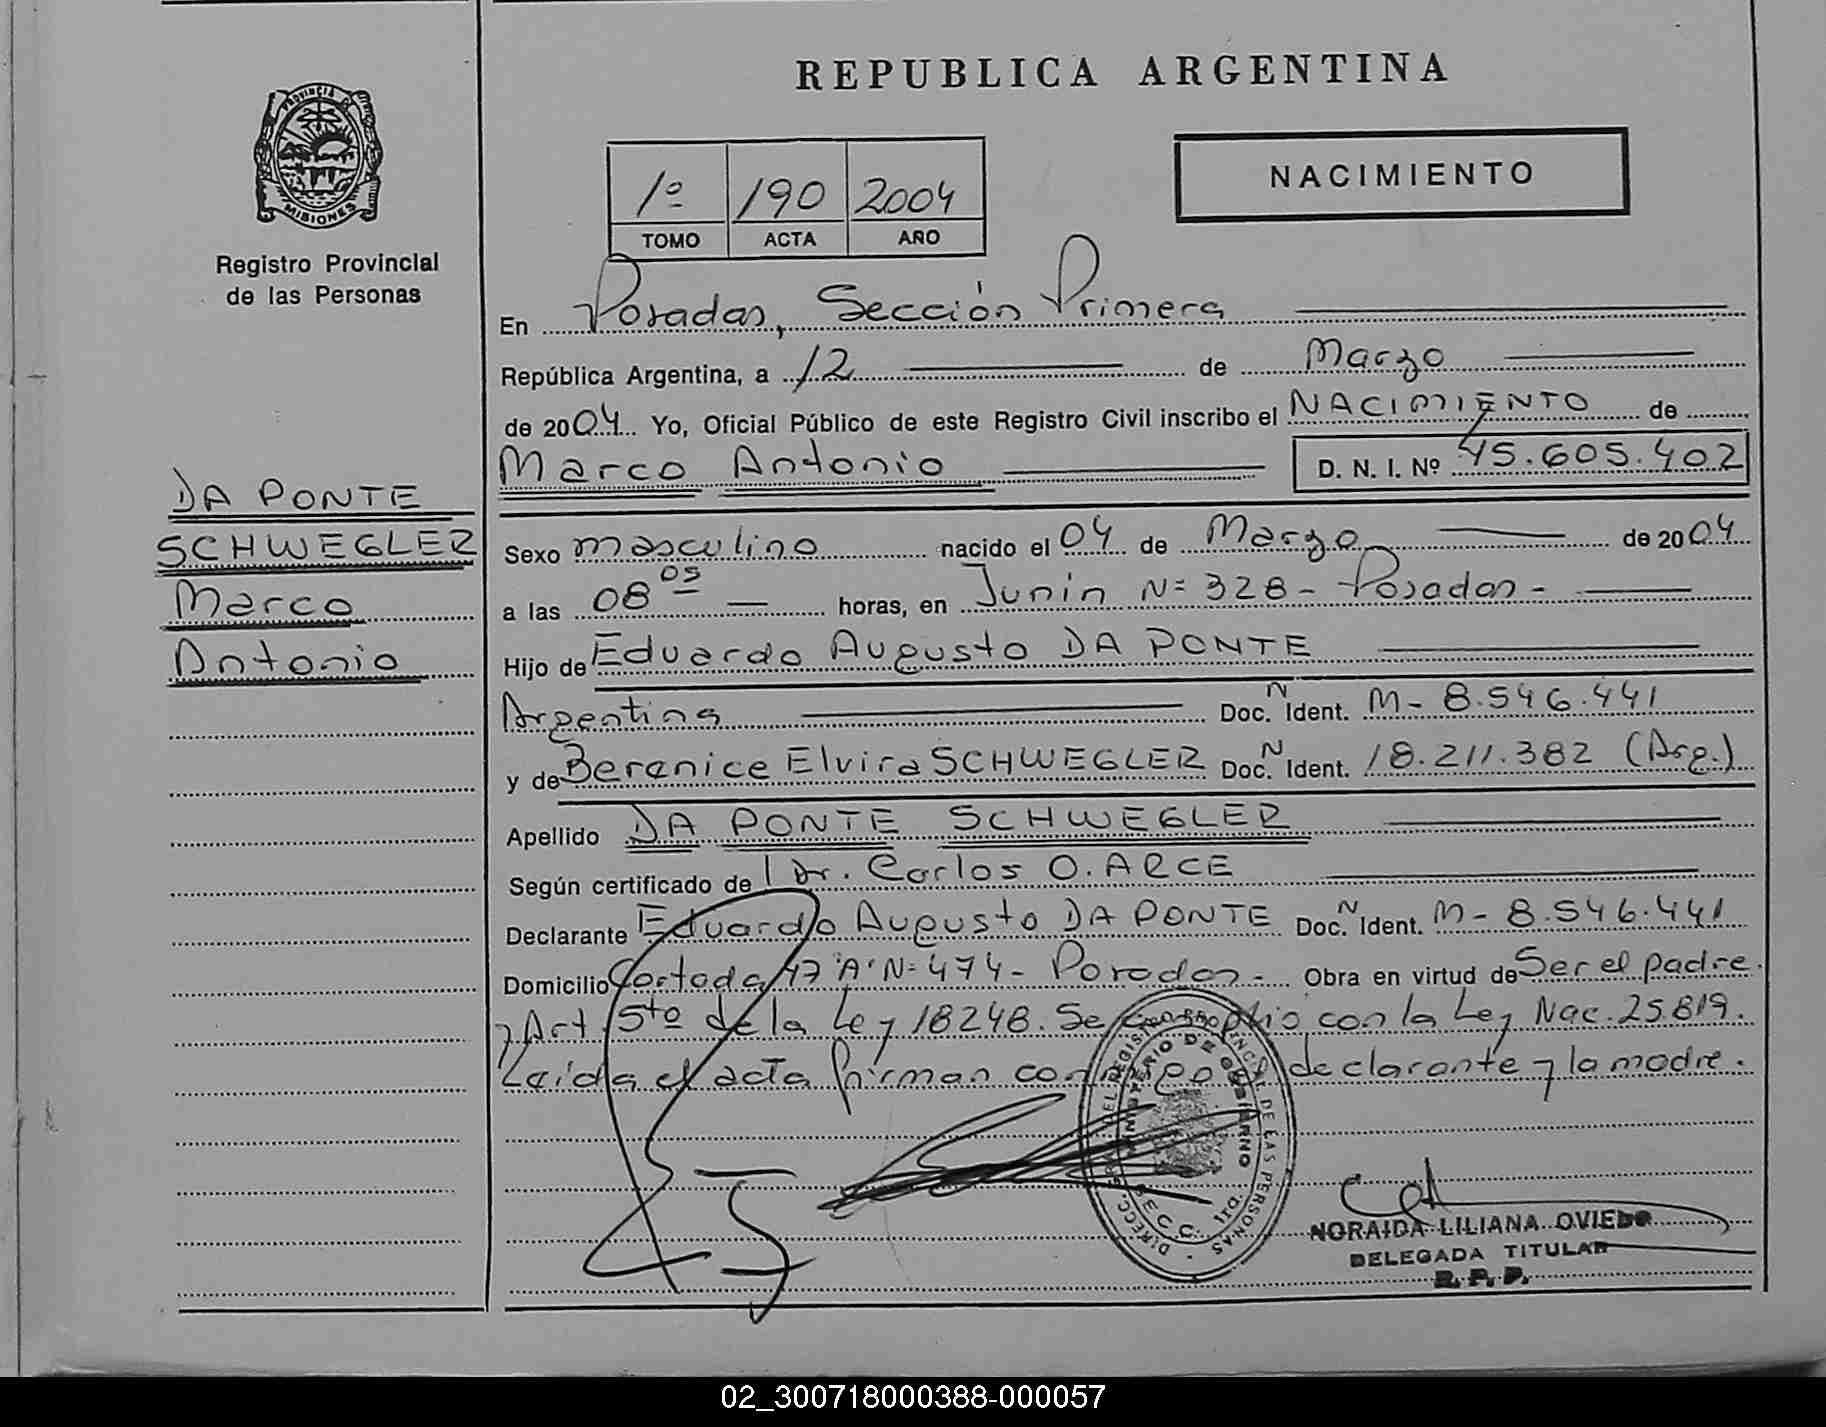 REPUBLICA ARGENTINA
PROVINCIA DE
MISIONES
Registro Provincial
de las Personas
1º 190 2004
TOMO ACTA AÑO
NACIMIENTO
En Posadas, Sección Primera
República Argentina, a 12 de Marzo
de 2004 Yo, Oficial Público de este Registro Civil inscribo el NACIMIENTO de
Marco Antonio D. N. I. Nº 45.605.402
DA PONTE
SCHWEGLER
Marco
Antonio
Sexo masculino nacido el 04 de Marzo de 2004
a las 08 05 horas, en Junín Nº 328 - Posadas -
Hijo de Eduardo Augusto DA PONTE
Argentina Doc. N Ident. M- 8.546.441
y de Berenice Elvira SCHWEGLER Doc. N Ident. 18.211.382 (Arg.)
Apellido DA PONTE SCHWEGLER
Según certificado de Dr. Carlos O. ARCE
Declarante Eduardo Augusto DA PONTE Doc. N Ident. M- 8.546.441
Domicilio Cortada 47 "A" Nº 474 - Posadas - Obra en virtud de Ser el padre
y Art. 5to de la Ley 18248. Se cumplió con la Ley Nac. 25.819.
Leída el acta firman conmigo el declarante y la madre.
DIRECC. GRAL. DEL REGISTRO PROVINCIAL DE LAS PERSONAS
MINISTERIO DE GOBIERNO
SECC. 1RA.
NORAIDA LILIANA OVIEDO
DELEGADA TITULAR
R. P. P.
02_300718000388-000057